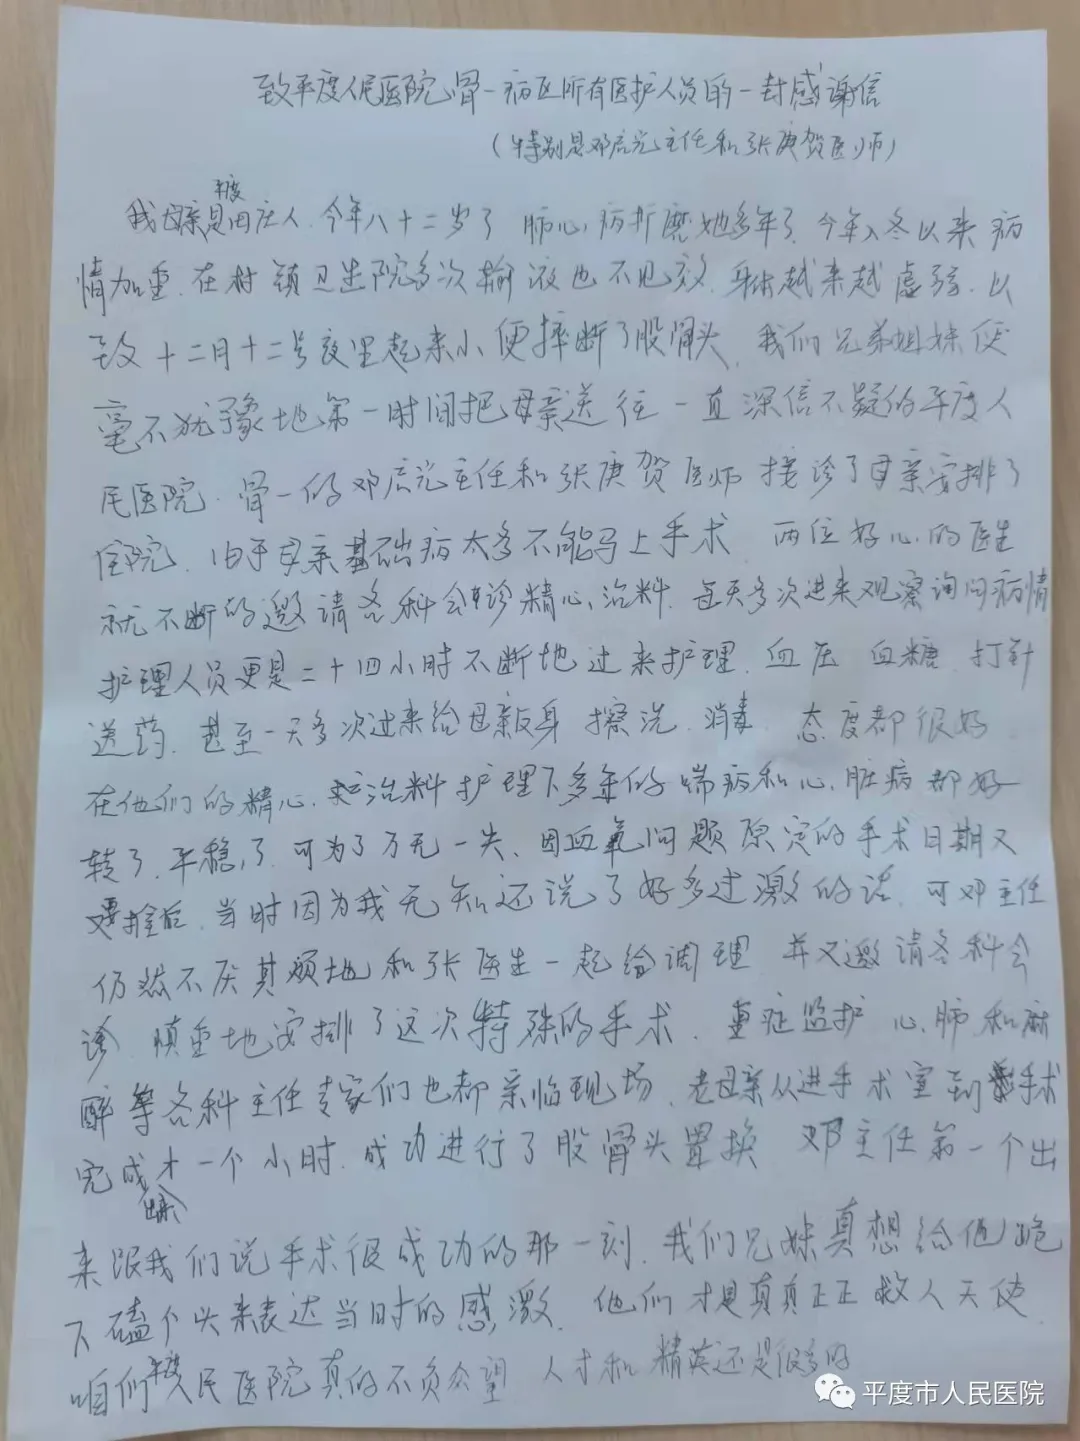 致平度人民医院骨一病区所有医护人员的一封感谢信
(特别是邓启光主任和张庚贺医师)
平度
我母亲是田庄人.今年八十二岁了 肺心病折磨她多年了.今年入冬以来病
情加重.在村镇卫生院多次输液也不见效.身体越来越虚弱.以
致十二月十二号夜里起来小便摔断了股骨头.我们兄弟姐妹
毫不犹豫地第一时间把母亲送往一直深信不疑的平度人
民医院.骨一的邓启光主任和张庚贺医师 接诊了母亲安排了
住院.由于母亲基础病太多不能马上手术 两位好心的医生
就不断的邀请各科会诊精心治料.每天多次进来观察询问病情
护理人员更是二十四小时不断地过来护理.血压 血糖.打针
送药.甚至一天多次过来给母亲翻身 擦洗.消毒.态度都很好
在他们的精心治料护理下多年的喘病和心脏病都好
转了.平稳了.可为了万无一失、因血氧问题原定的手术日期又
要推后.当时因为我无知还说了好多过激的话.可邓主任
仍然不厌其烦地和张医生一起给调理 并又邀请各科会
诊.慎重地安排了这次特殊的手术.重症监护 心肺和麻
醉等各科主任专家们也都亲临现场.老母亲从进手术室到手术
完成才一个小时.成功进行了股骨头置换 邓主任第一个出
来跟我们说手术很成功的那一刻.我们兄妹真想给他跪
下磕个头来表达当时的感激.他们才是真真正正救人天使
咱们平度人民医院真的不负众望 人才和精英还是很多的
平度市人民医院